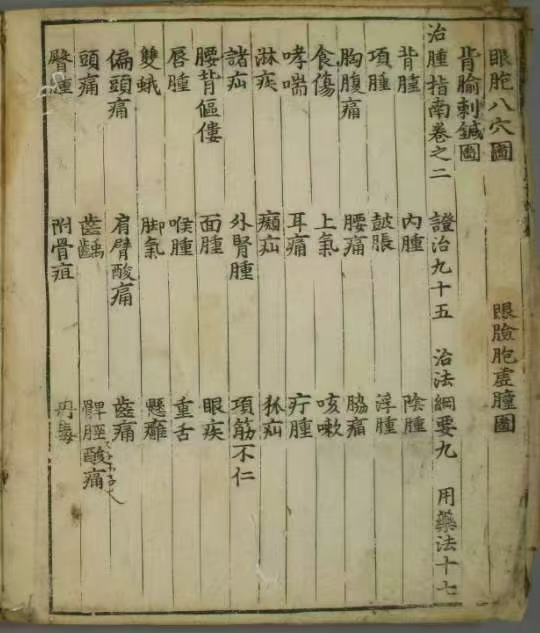 眼胞八穴圖 眼臉胞虛腫圖
背腧刺鍼圖
治腫指南卷之二 證治九十五 治法綱要九 用藥法十七
背腫 內腫 陰腫
項腫 皷脹 浮腫
胸腹痛 腰痛 脇痛
食傷 上氣 咳嗽
哮喘 耳痛 疔腫
淋疾 癩疝 狐疝
諸疝 外腎腫 項筋不仁
腰背傴僂 面腫 眼疾
唇腫 喉腫 重舌
雙蛾 脚氣 懸癰
偏頭痛 肩臂酸痛 齒痛
頭痛 齒齲 髀脛酸痛
臀腫 附骨疽 丹毒